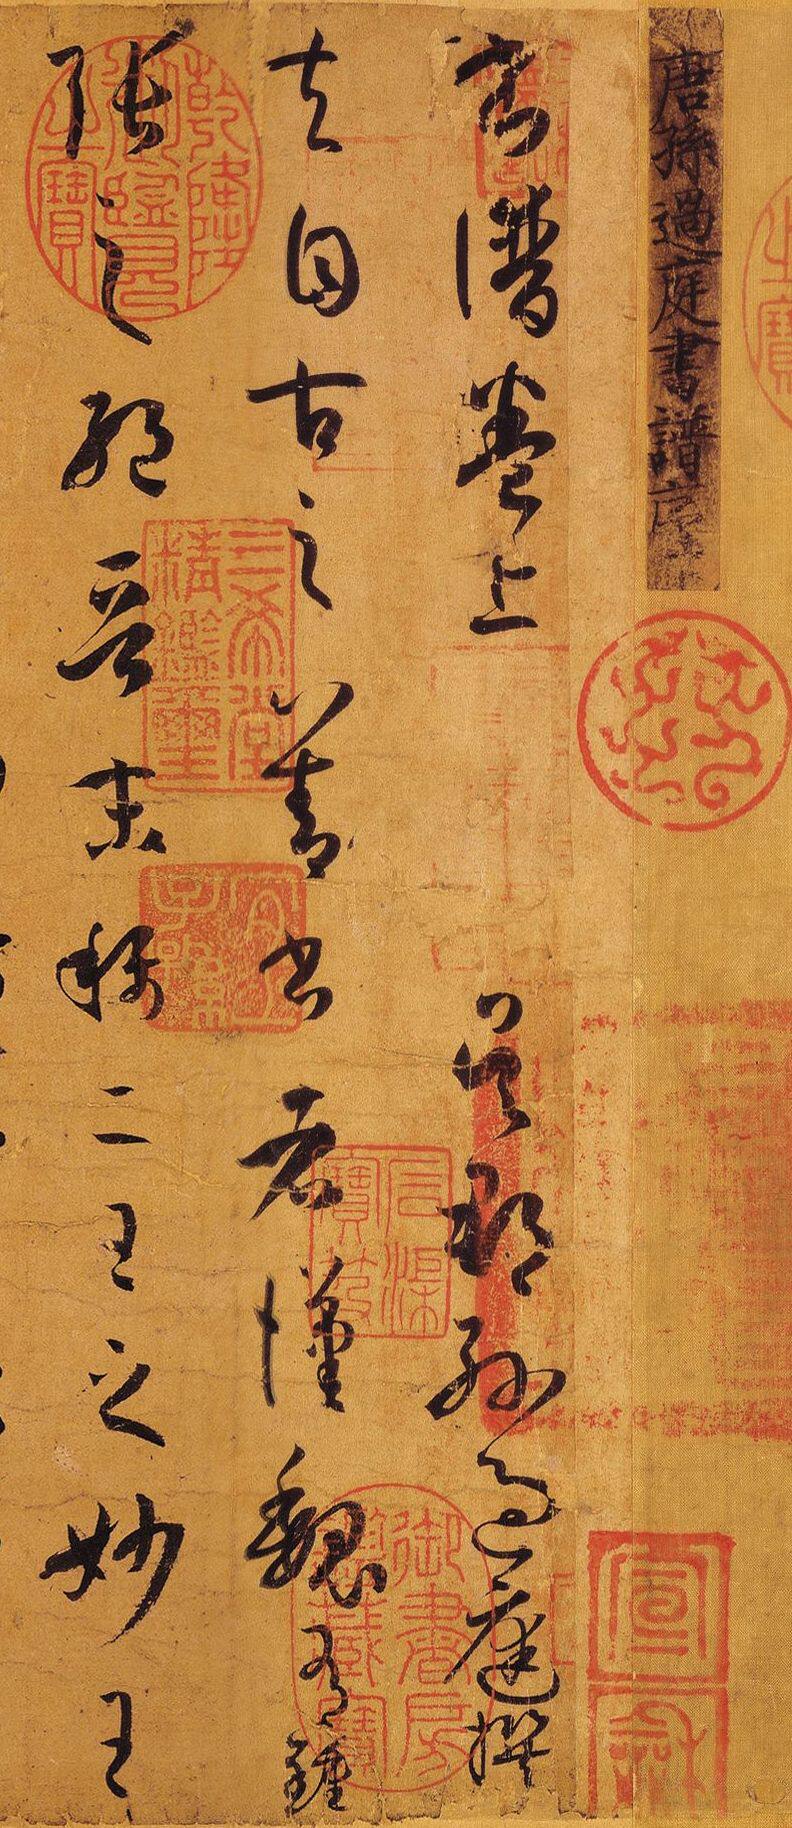 唐孫過庭書譜序
書譜卷上 吳郡孫過庭撰
夫自古之善書者漢魏有鍾
張之絕晉末稱二王之妙王
乾隆御覽之寶
三希堂精鑑璽
宜子孫
石渠寶笈
御書房鑑藏寶
宣和
之寶